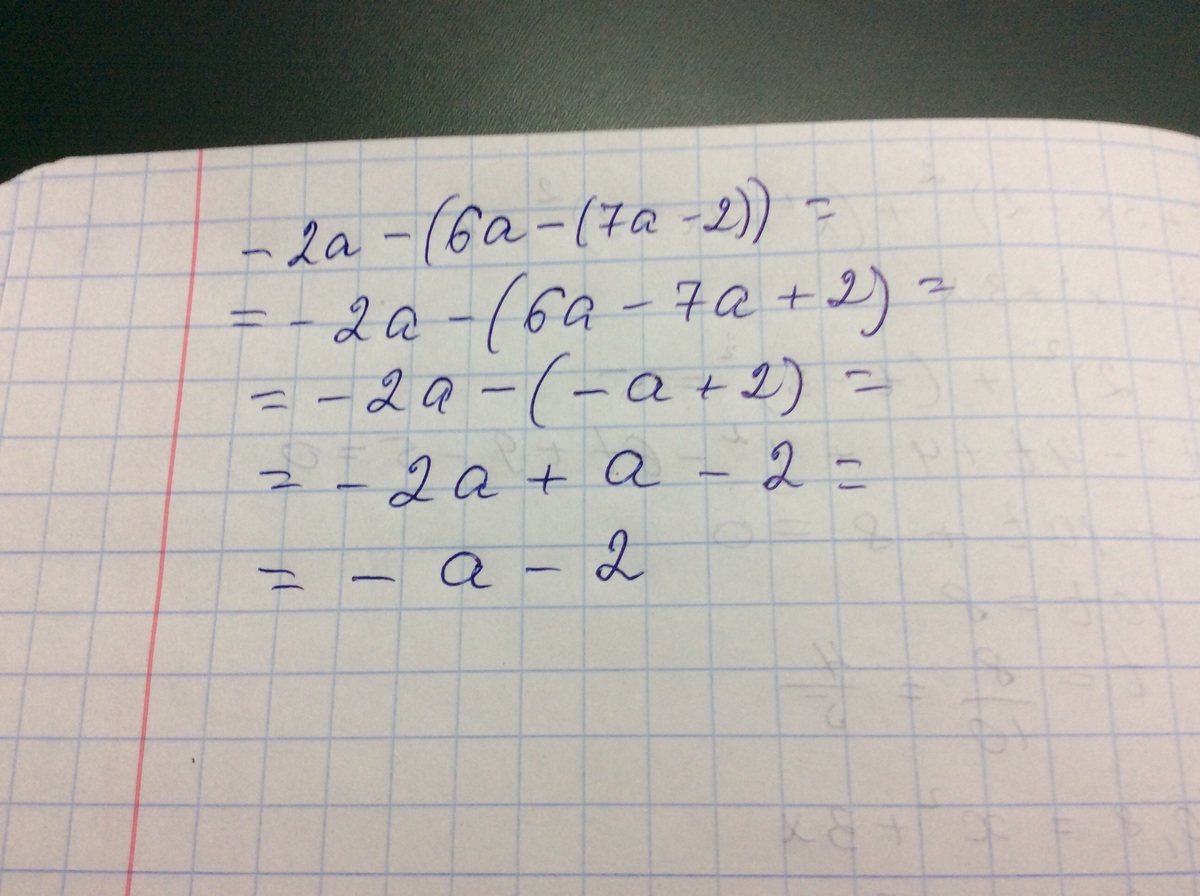 -2a-(6a-(7a-2))=
=-2a-(6a-7a+2)=
=-2a-(-a+2)=
=-2a+a-2=
=-a-2